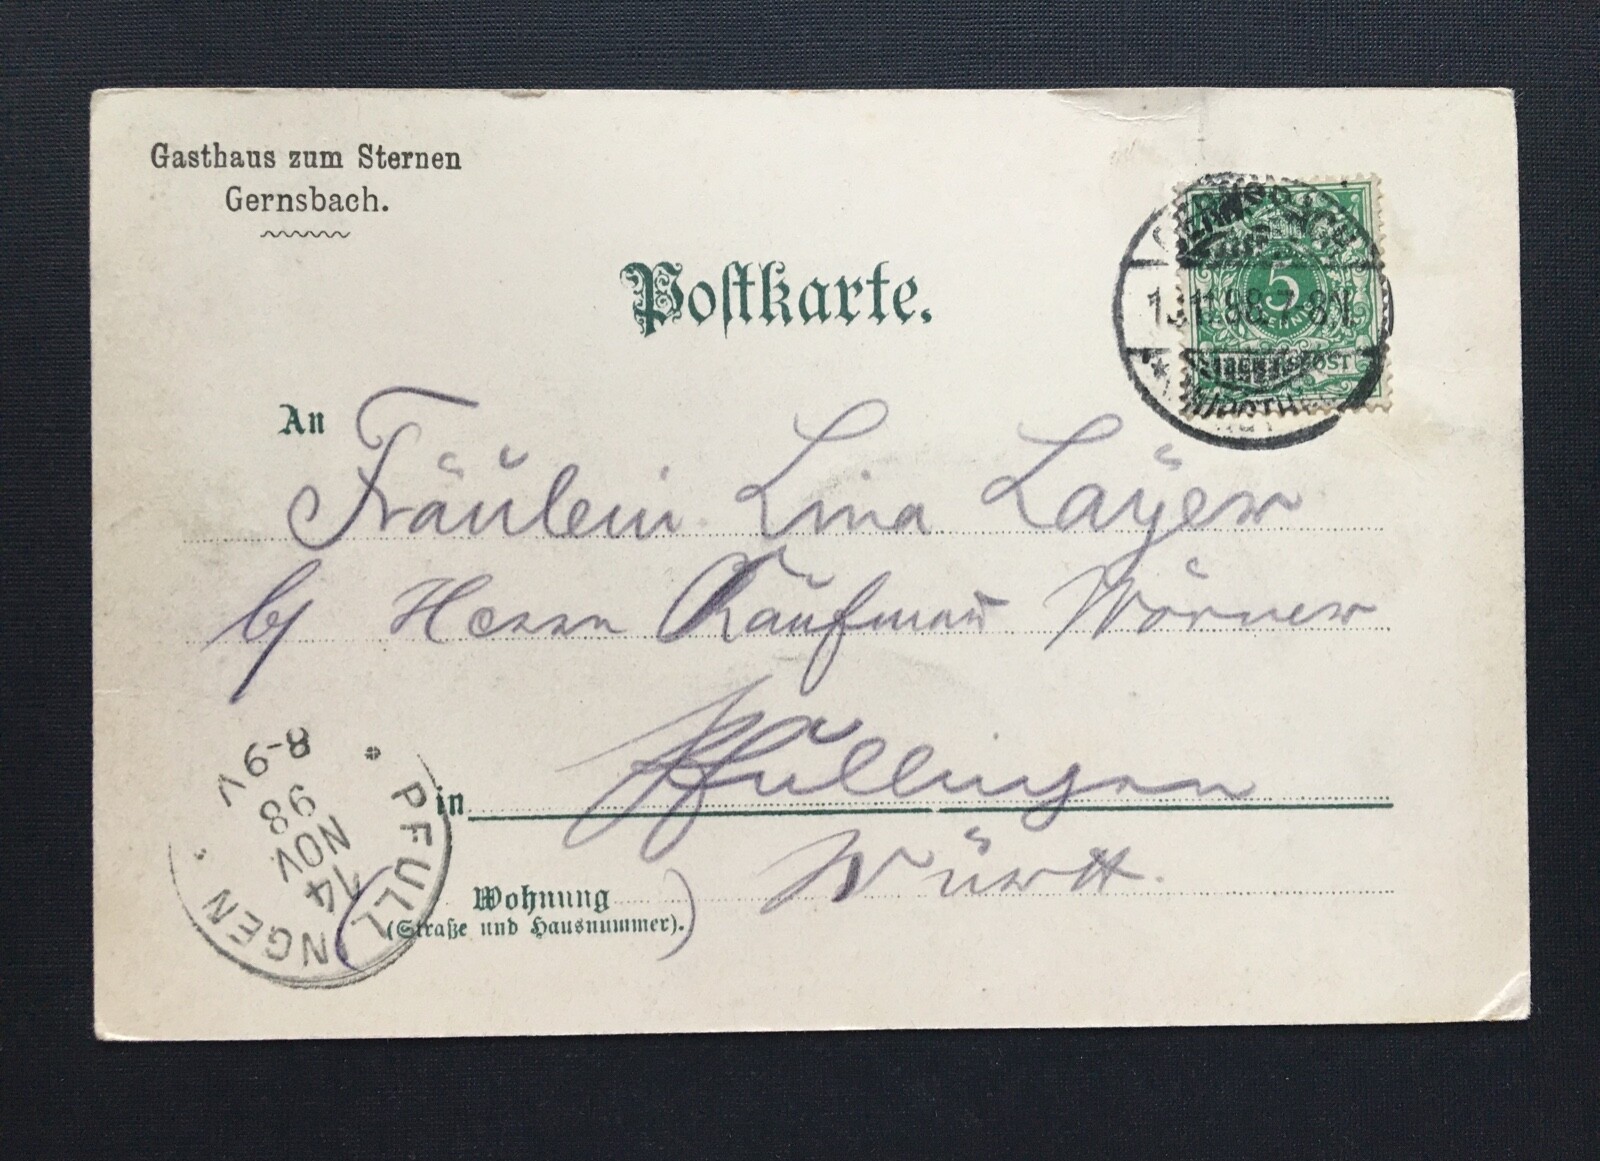 Gasthaus zum Sternen
Gernsbach.
Postkarte.
GERNSBACH
13.11.98.7-8N.
5
PFENNIG
REICHSPOST
An Fräulein Lina Layer
b/ Herrn Kaufmann Wörner
in Pfullingen
Württ.
Wohnung
(Straße und Hausnummer).
PFULLINGEN
14
NOV.
98
8-9V